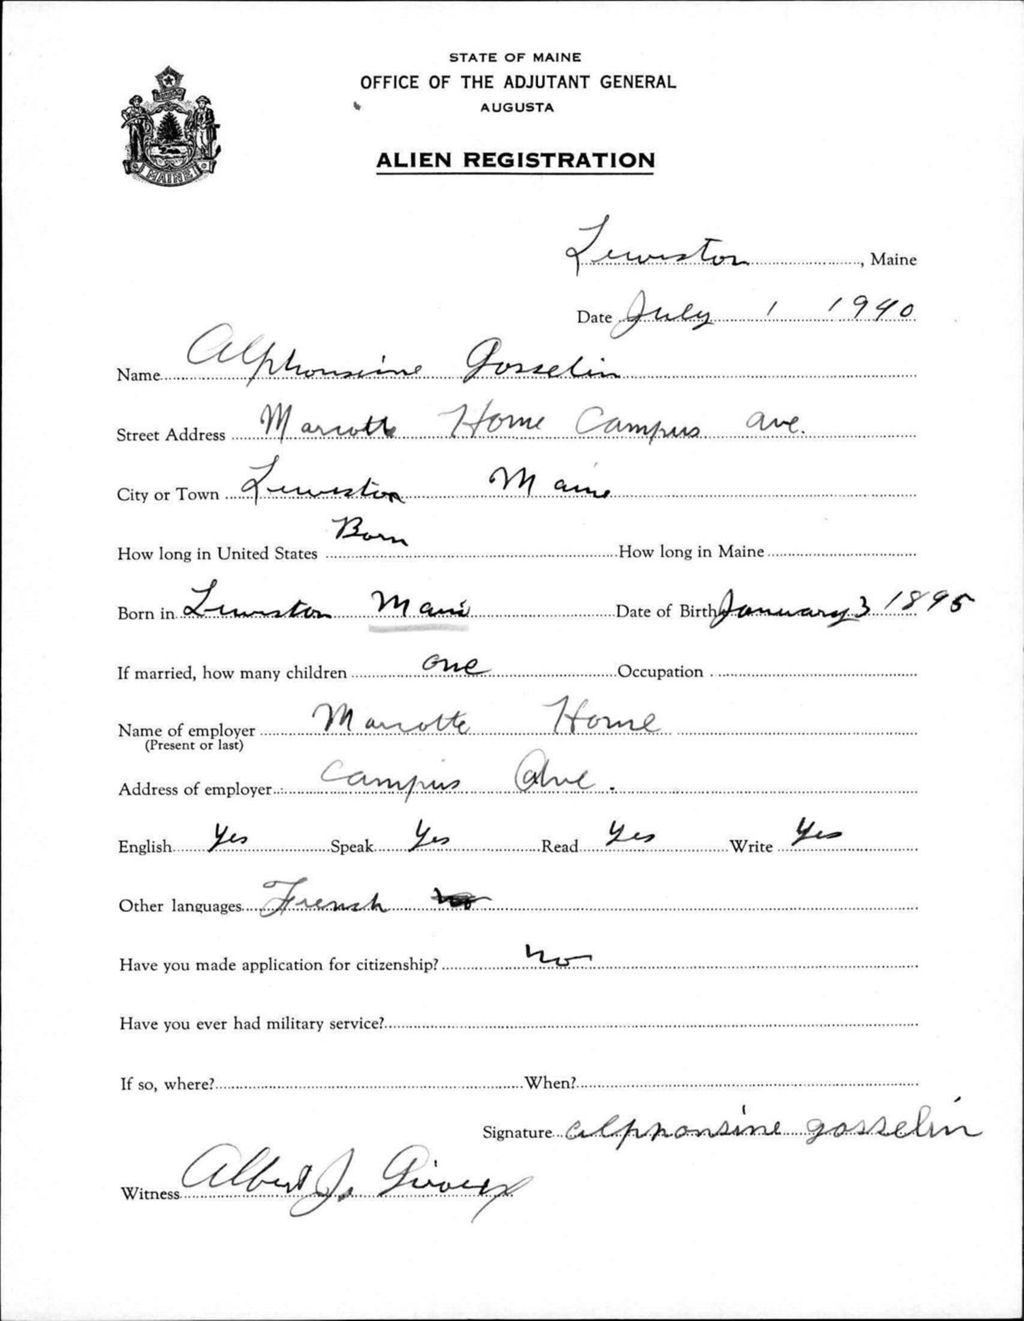 STATE OF MAINE
OFFICE OF THE ADJUTANT GENERAL
AUGUSTA
MAINE
ALIEN REGISTRATION
Lewiston, Maine
Date July 1 1940
Name Alphonsine Gosselin
Street Address Marcotte Home Campus ave.
City or Town Lewiston Maine
How long in United States Born How long in Maine
Born in Lewiston Maine Date of Birth January 3 1895
If married, how many children one Occupation
Name of employer Marcotte Home
(Present or last)
Address of employer Campus Ave.
English Yes Speak Yes Read Yes Write Yes
Other languages French
Have you made application for citizenship? No
Have you ever had military service?
If so, where? When?
Signature alphonsine gosselin
Witness Albert J.